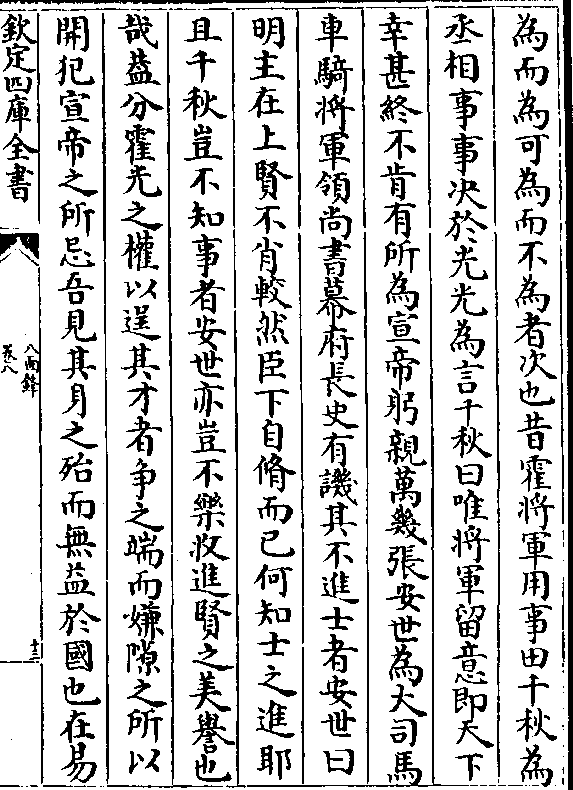 為而為可為而不為者次也昔霍將軍用事田千秋為
丞相事事决於光光為言千秋曰唯將軍留意即天下
幸甚終不肯有所為宣帝躬親萬幾張安世為大司馬
車騎將軍領尚書幕府長史有譏其不進士者安世曰
明主在上賢不肖較然臣下自脩而已何知士之進耶
且千秋豈不知事者安世亦豈不樂收進賢之美譽也
哉葢分霍光之權以逞其才者争之端而嫌隙之所以
開犯宣帝之所忌吾見其身之殆而無益於國也在易
欽定四庫全書
八面鋒
卷八
十三